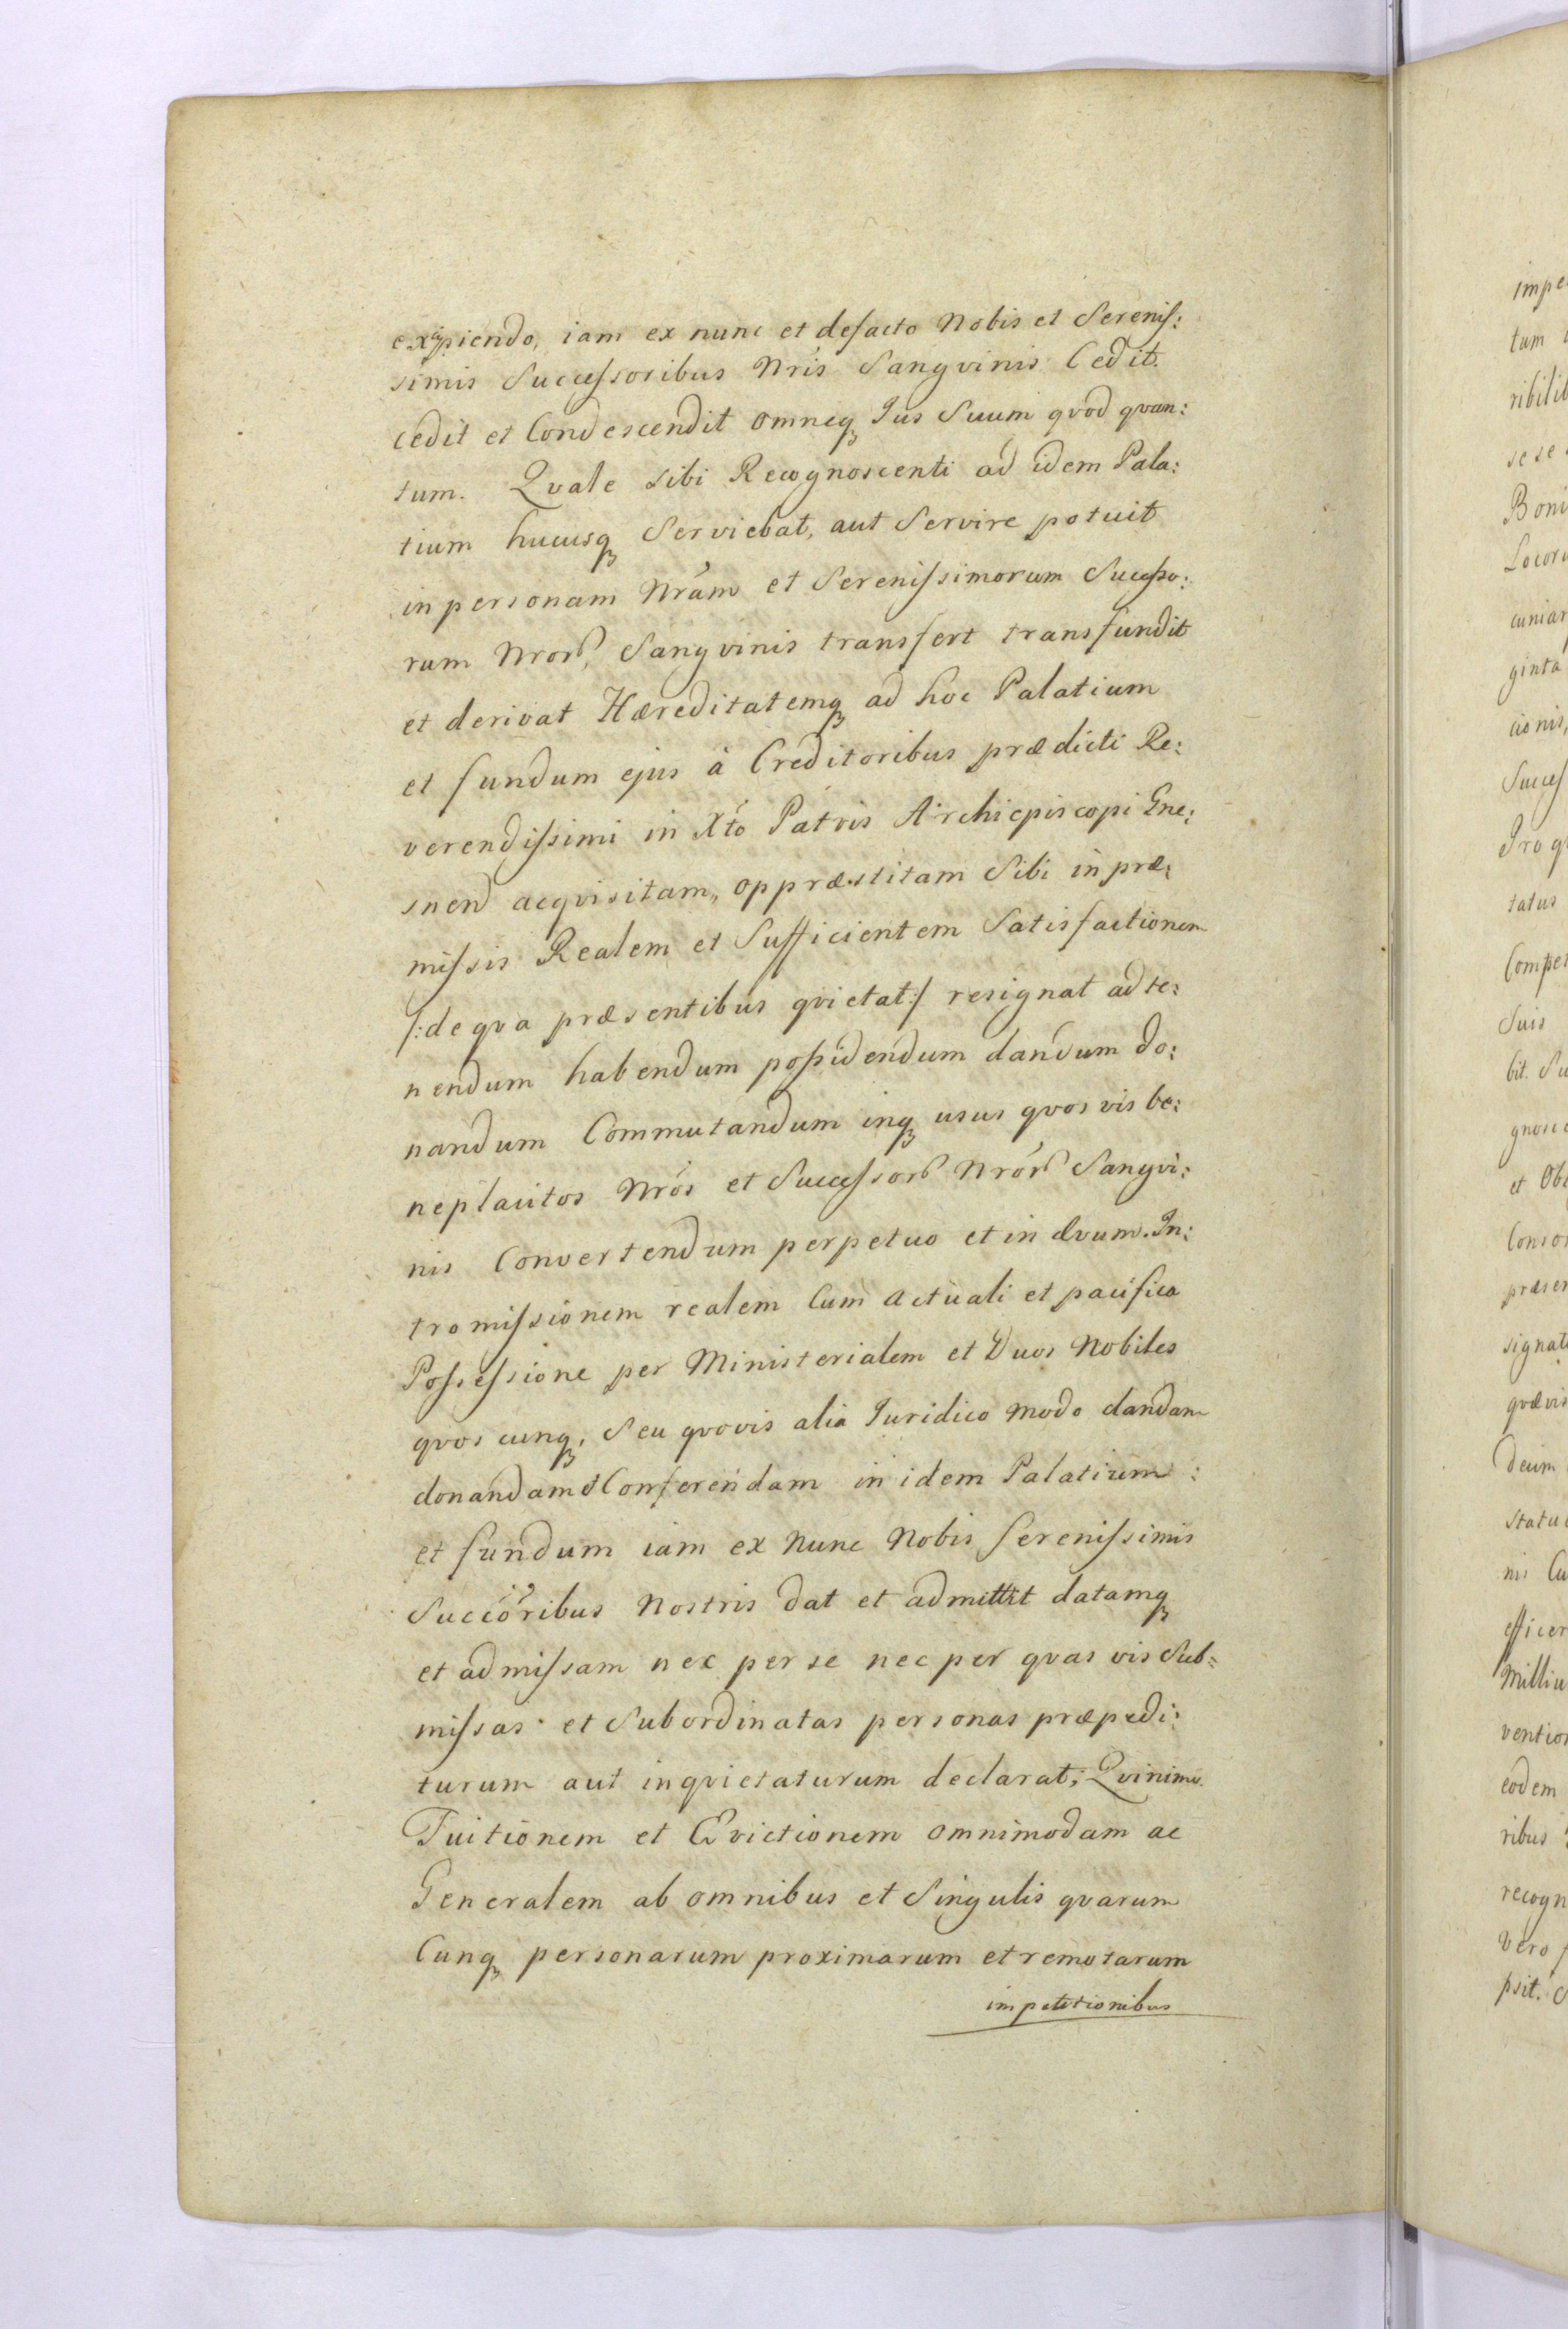 excipiendo, iam ex nunc et defacto Nobis et Serenis:
simis Successoribus Nris Sangvinis Cedit.
cedit et Condescendit omneq Jus Suum qvod qvan:
tum. Qvale sibi Recognoscenti ad idem Pala:
tium hucusq Serviebat, aut Servire potuit
in personam Nram et Serenissimorum Successo:
rum Nror, Sangvinis transfert transfundit
et derivat Hæreditatemq ad hoc Palatium
et fundum ejus à Creditoribus prædicti Re:
verendissimi in Xto Patris Archiepiscopi Gne:
snen acqvisitam, oppræstitam Sibi in præ:
missis Realem et Sufficientem Satisfactionem
/:de qva præsentibus qvietat:/ resignat ad te:
nendum habendum possidendum dandum do:
nandum Commutandum inq usus qvos vis be:
neplacitos Nros et Successor Nror Sangvi:
nis Convertendum perpetuo et in ævum. In:
tromissionem realem Cum actuali et pacifica
Possessione per Ministerialem et Duos Nobiles
qvos cunq, Seu qvovis alio Juridico modo dandam
donandam et Conferendam in idem Palatium :
et fundum iam ex Nunc Nobis Serenissimis
Succoribus Nostris dat et admittit datamq
et admissam nec per se nec per qvas vis Sub:
missas et Subordinatas personas præpedi:
turum aut inqvietaturum declarat; Qvinimo.
Tuitionem et Evictionem omnimodam ac
Generalem ab omnibus et Singulis qvarum
Cunq personarum proximarum et remotarum
impetitionibus
tum
sese
Boni
ginta
cionis,
Succes
tatus
Compet
Suis
et Obl
signat
qvævis
Deum
statu
ventio
eodem
ribus
recogn
vero